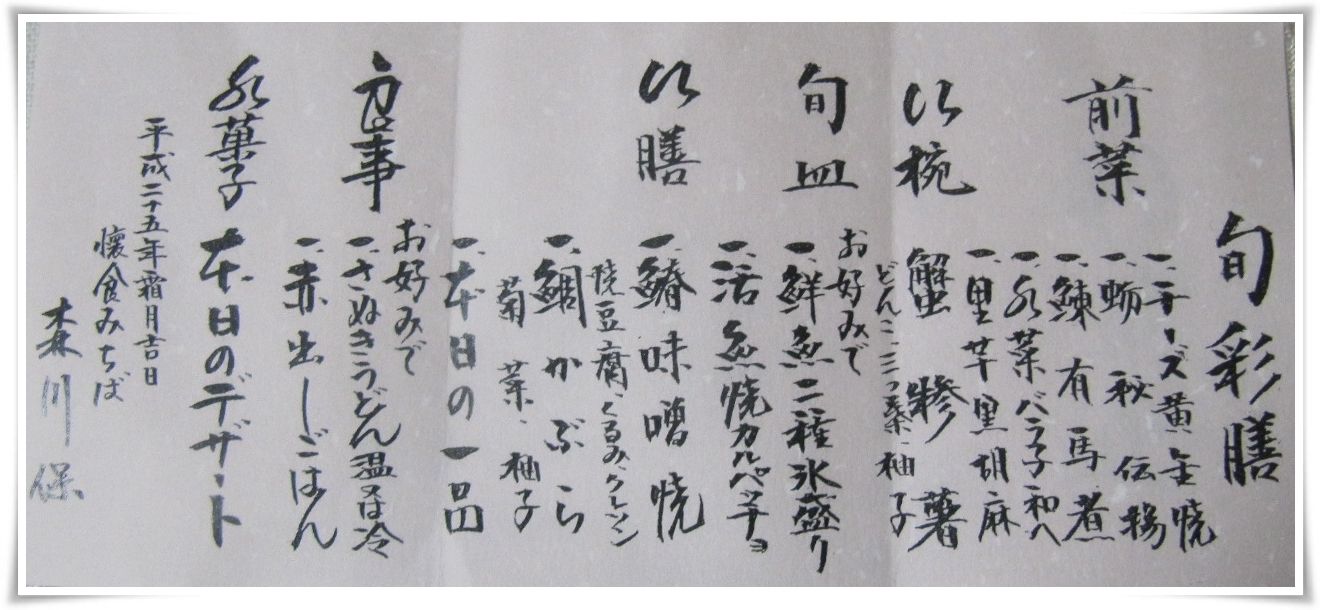 旬彩膳
前菜
一、チーズ黄金焼
一、蛎秘伝揚
一、鰊有馬煮
一、水菜バラ子和へ
一、里芋黒胡麻
汁椀
蟹糝薯
どんこ、三つ葉、柚子
旬皿
お好みで
一、鮮魚二種氷盛り
一、活魚焼カルパッチョ
汁膳
一、鰆味噌焼
焼豆腐、くるみ、クレソン
一、鯛かぶら
菊菜、柚子
一、本日の一品
食事
お好みで
一、さぬきうどん温又は冷
一、赤出しごはん
水菓子
本日のデザート
平成二十五年霜月吉日
懐食みちば
森川保